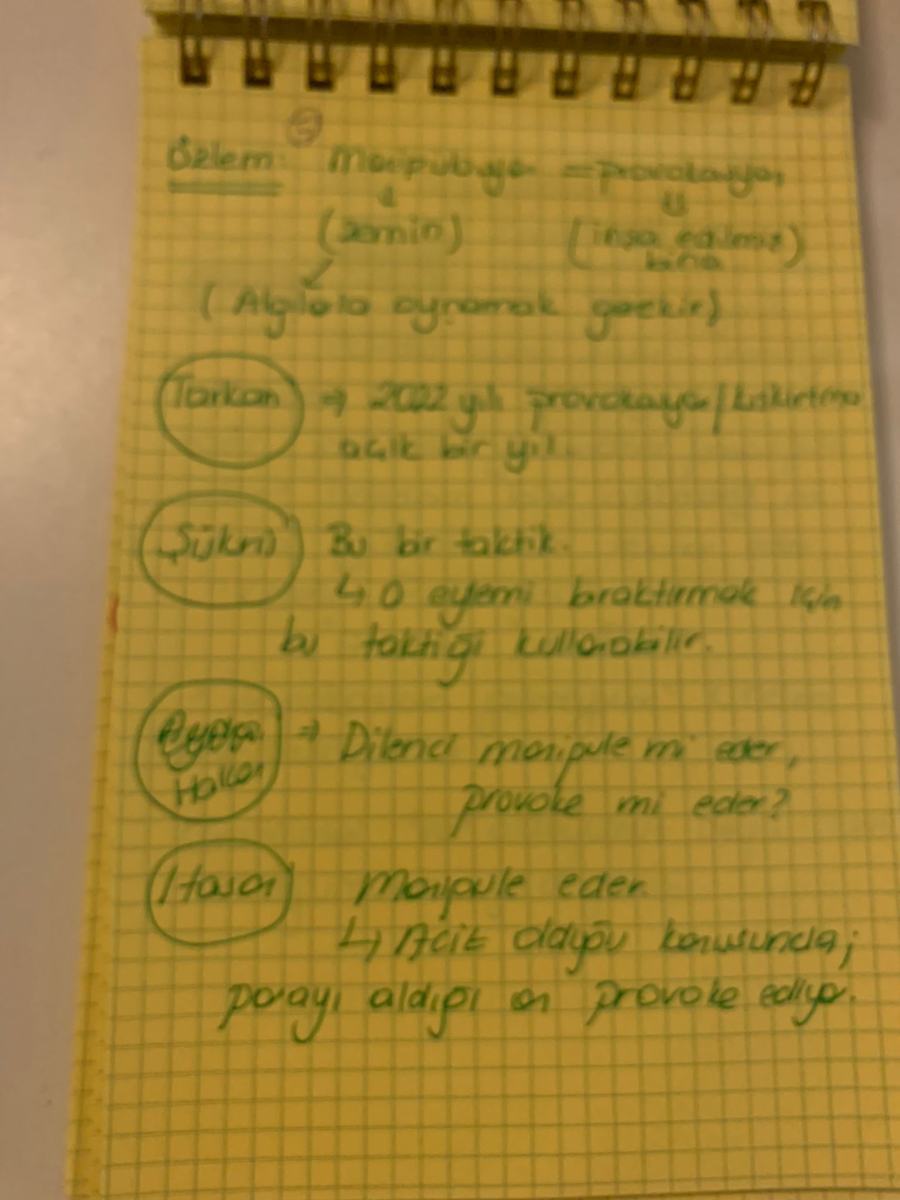 5
Özlem: Manipulasyon = provokasyon
(zemin) (inşa edilmiş
bina)
(Algılarla oynamak gerekir)
Tarkan → 2022 yılı provokasyon/kışkırtma
açık bir yıl.
Şükrü Bu bir taktik.
↳ O eylemi bıraktırmak için
bu taktiği kullanabilir.
Hakan ⇒ Dilenci manipule mi eder,
provoke mi eder?
Hasan Manipule eder.
↳ Aciz olduğu konusunda;
parayı aldığı an provoke ediyor.